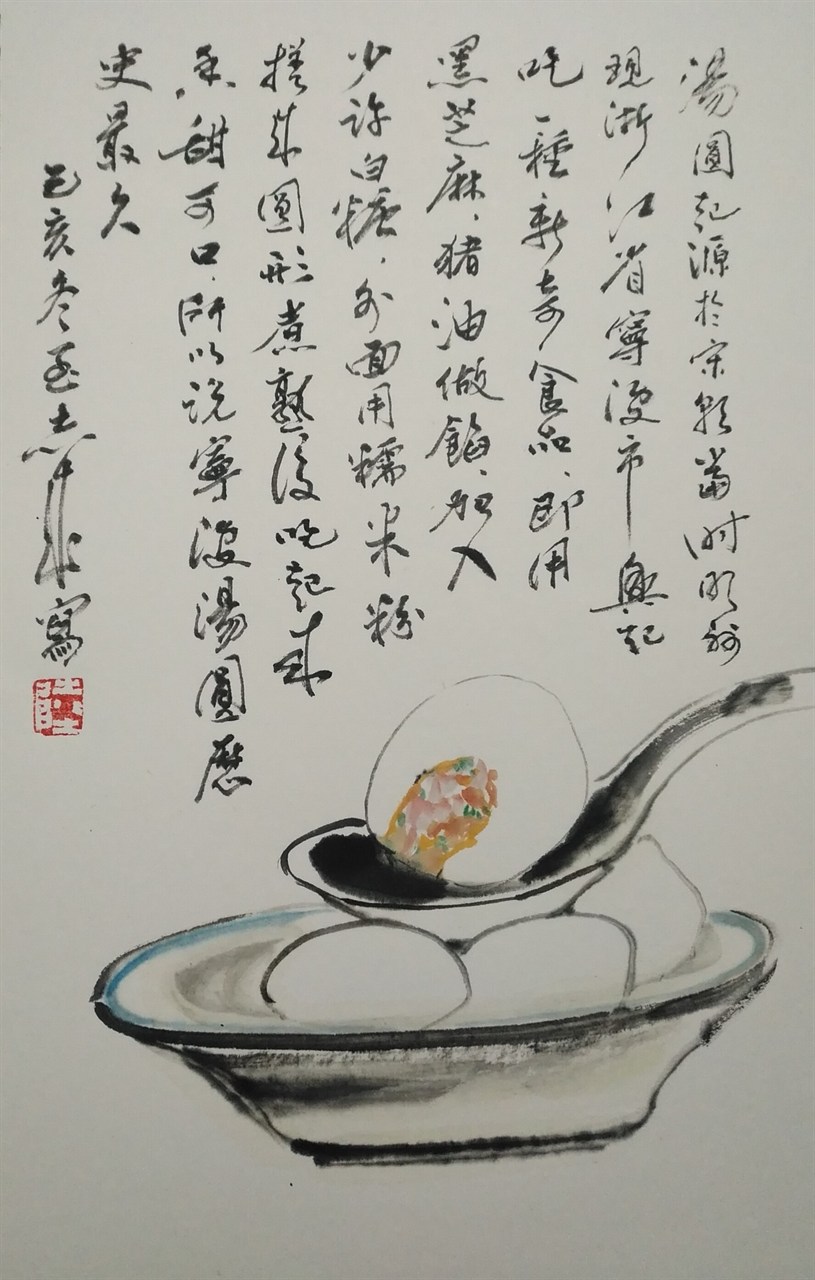 湯圓起源於宋朝當时明州
現浙江省寧波市興起
吃一種新奇食品、即用
黑芝麻、猪油做餡、加入
少許白糖、外面用糯米粉
搓成圓形煮熟後吃起來
香甜可口、所以说寧波湯圓歷
史最久
己亥冬至志 寫
陸